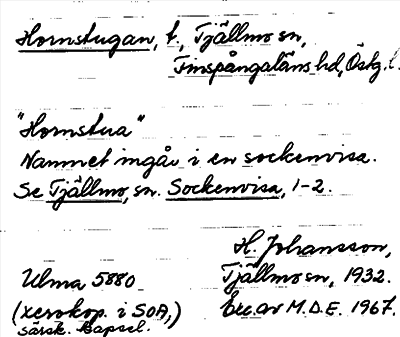 Hornstugan, t., Tjällmo sn,
Finspångaläns hd, Östg. l.
"Hornstua"
Namnet ingår i en sockenvisa.
Se Tjällmo, sn. Sockenvisa, 1-2.
H. Johansson,
Ulma 5880 Tjällmo sn, 1932.
(xerokop. i SOA,) Exc. av M.D.E. 1967.
särsk. kapsel.